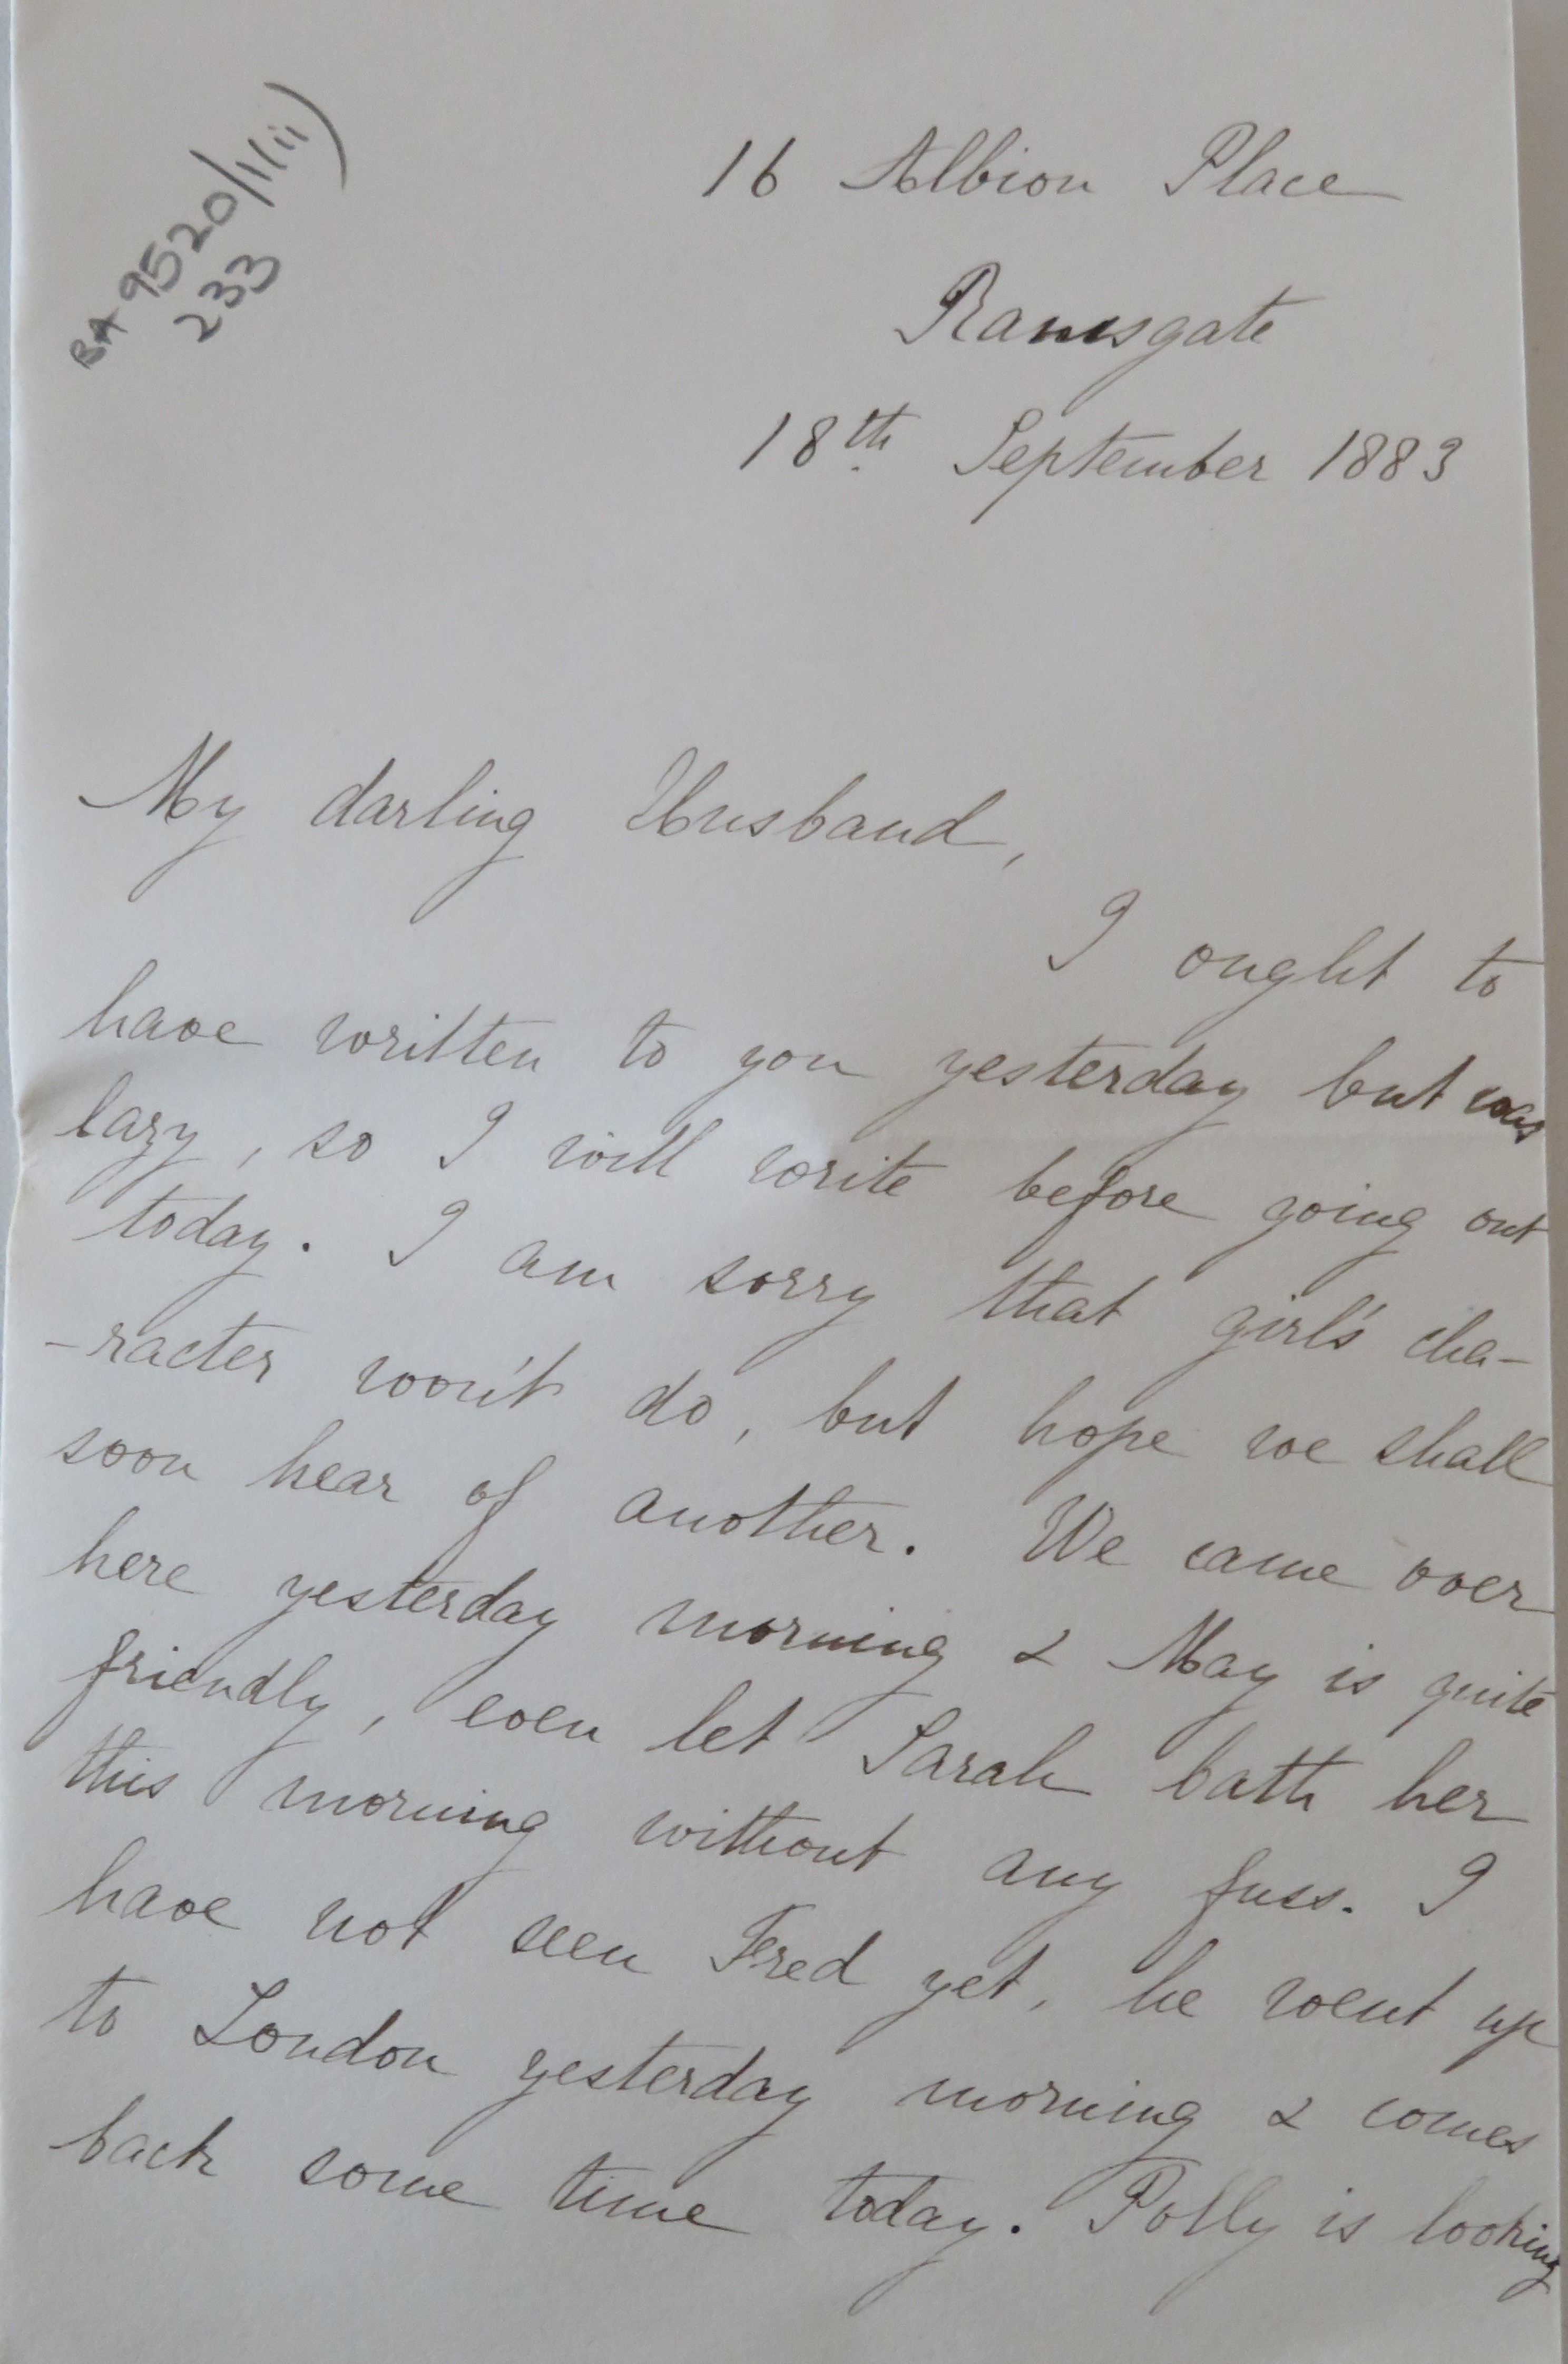 BA 9520/1/ii)
233
16 Albion Place
Ramsgate
18th September 1883
My darling Husband,
I ought to
have written to you yesterday but was
lazy, so I will write before going out
today. I am sorry that girl's cha-
-racter won't do, but hope we shall
soon hear of another. We came over
here yesterday morning & May is quite
friendly, even let Sarah bath her
this morning without any fuss. I
have not seen Fred yet, he went up
to London yesterday morning & comes
back some time today. Polly is looking